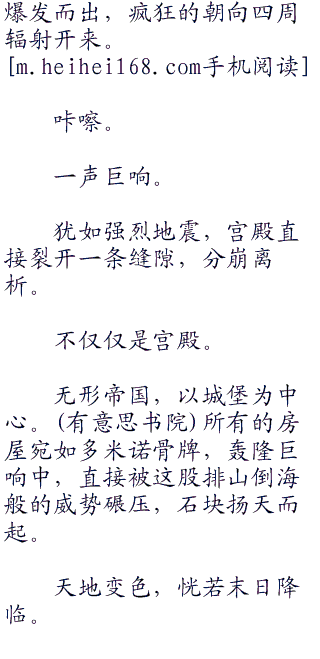 爆发而出，疯狂的朝向四周
辐射开来。
[m.heihei168.com手机阅读]
咔嚓。
一声巨响。
犹如强烈地震，宫殿直
接裂开一条缝隙，分崩离
析。
不仅仅是宫殿。
无形帝国，以城堡为中
心。(有意思书院)所有的房
屋宛如多米诺骨牌，轰隆巨
响中，直接被这股排山倒海
般的威势碾压，石块扬天而
起。
天地变色，恍若末日降
临。